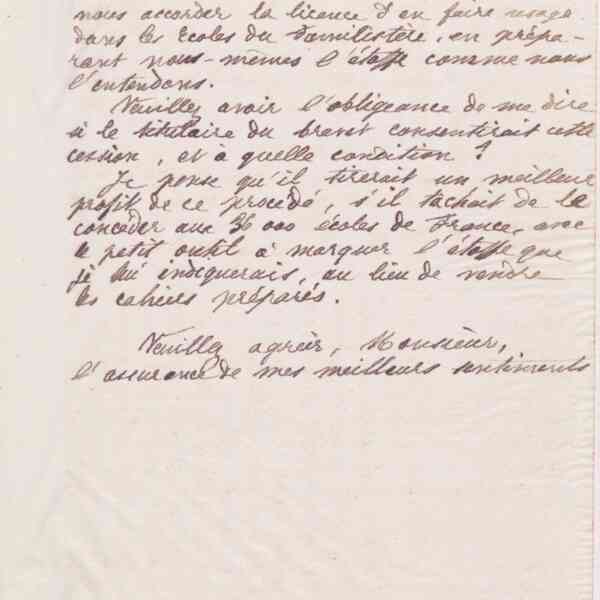 nous accorder la licence d'en faire usage
dans les Ecoles du Familistère, en prépa-
rant nous-mêmes l'étoffe comme nous
l'entendons.
Veuillez avoir l'obligeance de me dire
si le titulaire du brevet consentirait cette
cession, et à quelle condition ?
Je pense qu'il tirerait un meilleur
profit de ce procédé, s'il tachait de le
concéder aux 36 000 écoles de France, avec
le petit outil à marquer l'étoffe que
je lui indiquerais, au lieu de vendre
les cahiers préparés.
Veuillez agréer, Monsieur,
l'assurance de mes meilleurs sentiments